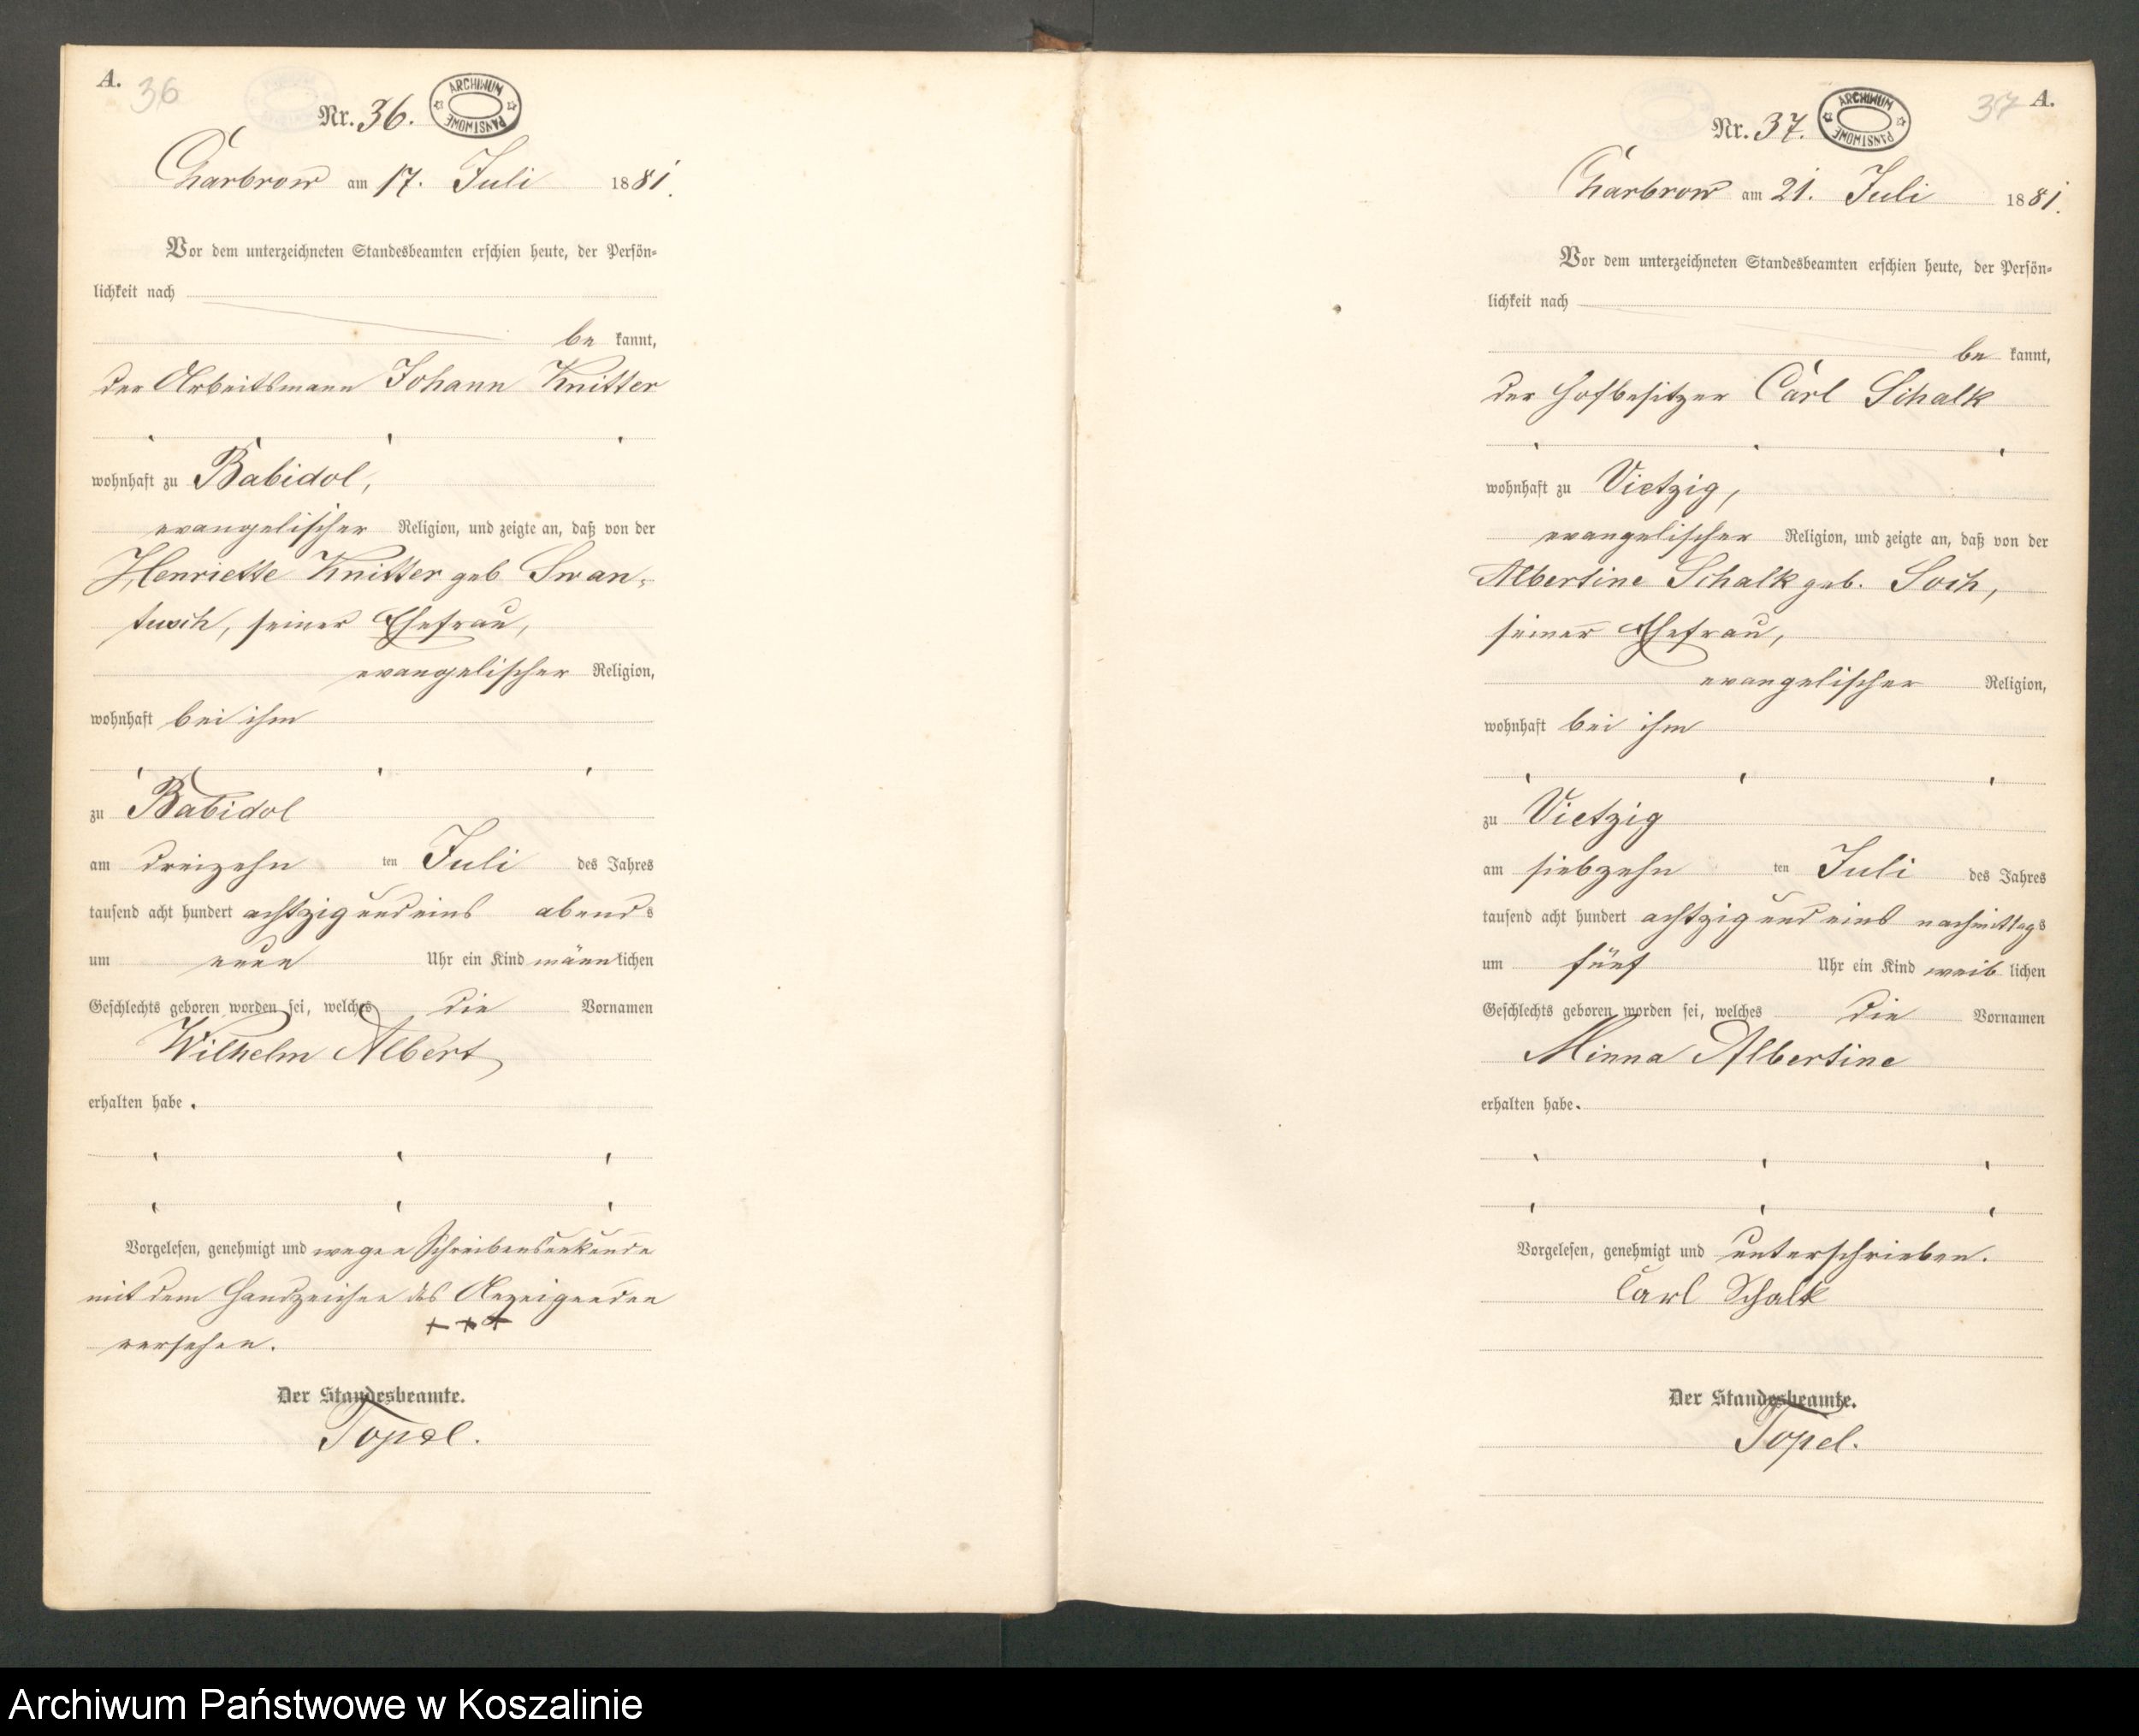 A.
36
Nr. 36.
ARCHIWUM PAŃSTWOWE
Charbrow am 17. Juli 1881.
Vor dem unterzeichneten Standesbeamten erschien heute, der Persön-
lichkeit nach
be kannt,
der Arbeitsmann Johann Knitter
wohnhaft zu Babidol,
evangelischer Religion, und zeigte an, daß von der
Henriette Knitter geb Swan-
tusch, seiner Ehefrau,
evangelischer Religion,
wohnhaft bei ihm
zu Babidol
am dreizehn ten Juli des Jahres
tausend acht hundert achtzig und eins abends
um neun Uhr ein Kind männlichen
Geschlechts geboren worden sei, welches die Vornamen
Wilhelm Albert
erhalten habe.
Vorgelesen, genehmigt und wegen Schreibensunkunde
mit dem Handzeichen des Anzeigenden
+++
versehen.
Der Standesbeamte.
Topel.
37 A.
Nr. 37.
ARCHIWUM PAŃSTWOWE
Charbrow am 21. Juli 1881.
Vor dem unterzeichneten Standesbeamten erschien heute, der Persön-
lichkeit nach
be kannt,
der Hofbesitzer Carl Schalk
wohnhaft zu Vietzig,
evangelischer Religion, und zeigte an, daß von der
Albertine Schalk geb. Soch,
seiner Ehefrau,
evangelischer Religion,
wohnhaft bei ihm
zu Vietzig
am siebzehn ten Juli des Jahres
tausend acht hundert achtzig und eins nachmittags
um fünf Uhr ein Kind weib lichen
Geschlechts geboren worden sei, welches die Vornamen
Minna Albertine
erhalten habe.
Vorgelesen, genehmigt und unterschrieben.
Carl Schalk
Der Standesbeamte.
Topel.
Archiwum Państwowe w Koszalinie